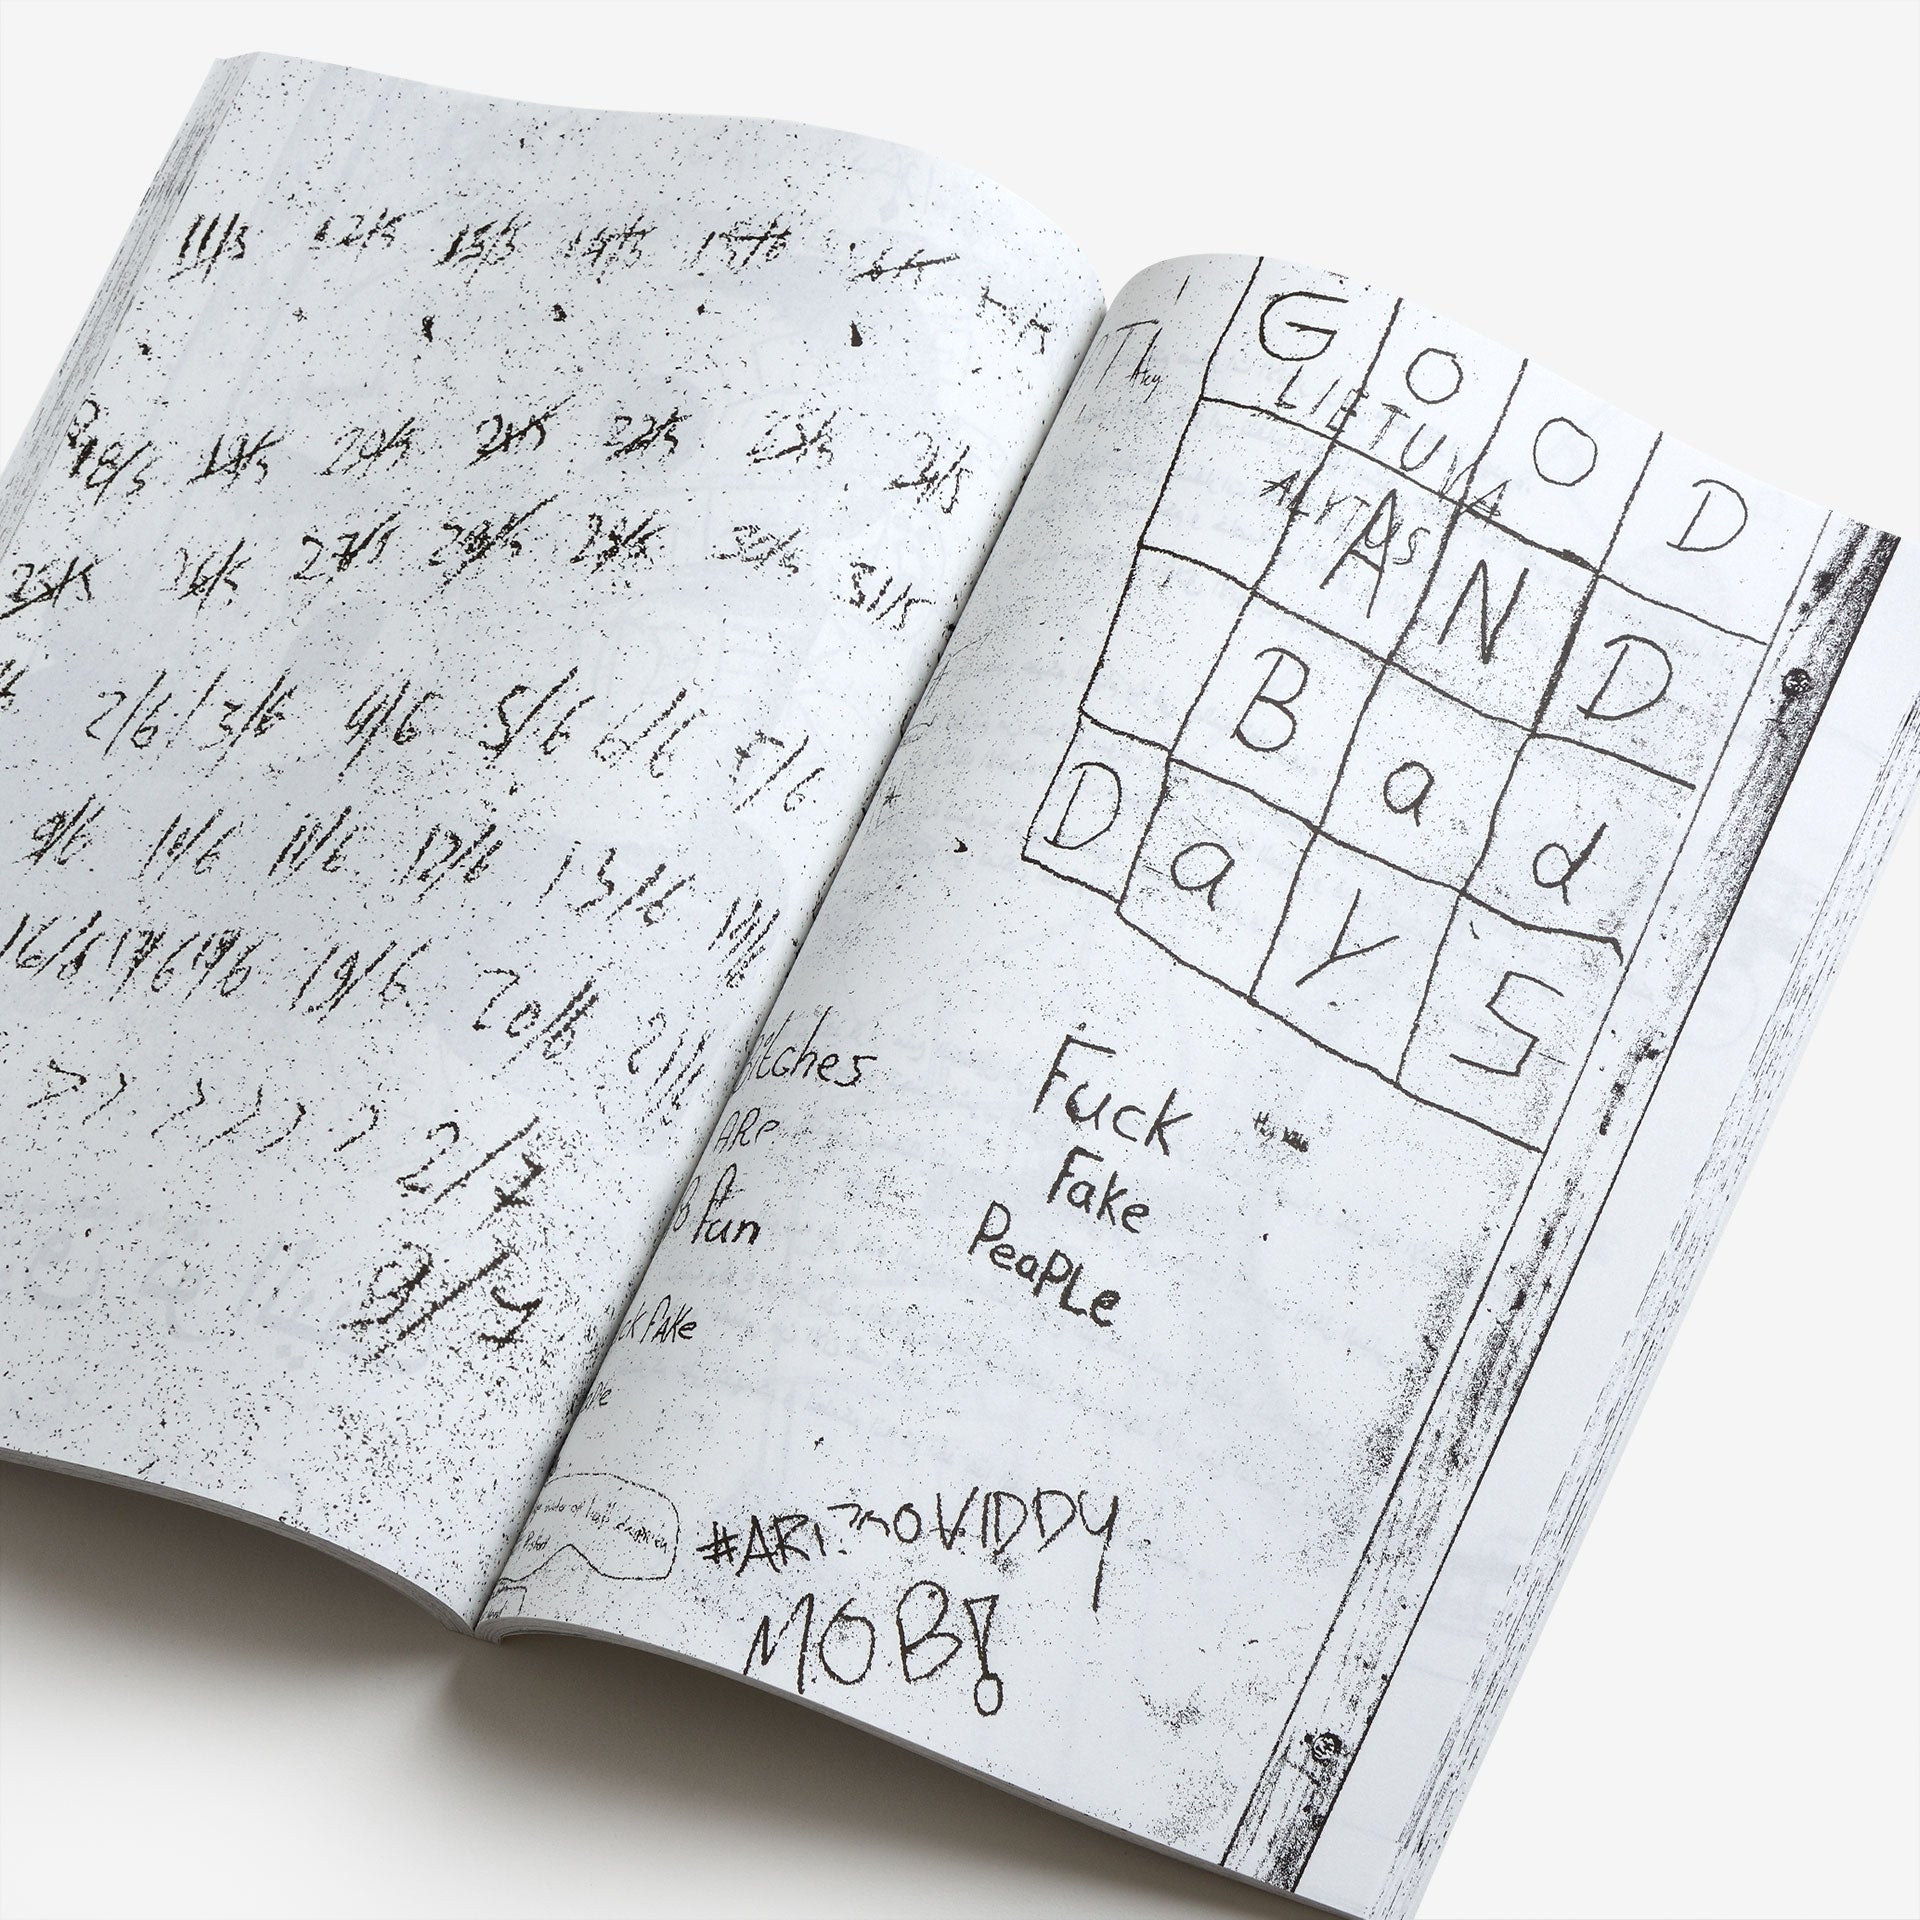 11/5 12/5 13/5 14/5 15/5 16/5
18/5 19/5 20/5 21/5 22/5 23/5 24/5
25/5 26/5 27/5 28/5 29/5 30/5 31/5
2/6 3/6 4/6 5/6 6/6 7/6
9/6 10/6 11/6 12/6 13/6 14/6
16/6 17/6 19/6 20/6 21/6
2/7
3/7
GOOD
LIETUVA
ALYTUS
AND
Bad
Days
Fuck
Fake
PeaPLe
ARe
fun
fAKe
#ARI
VIDDY
MOB!